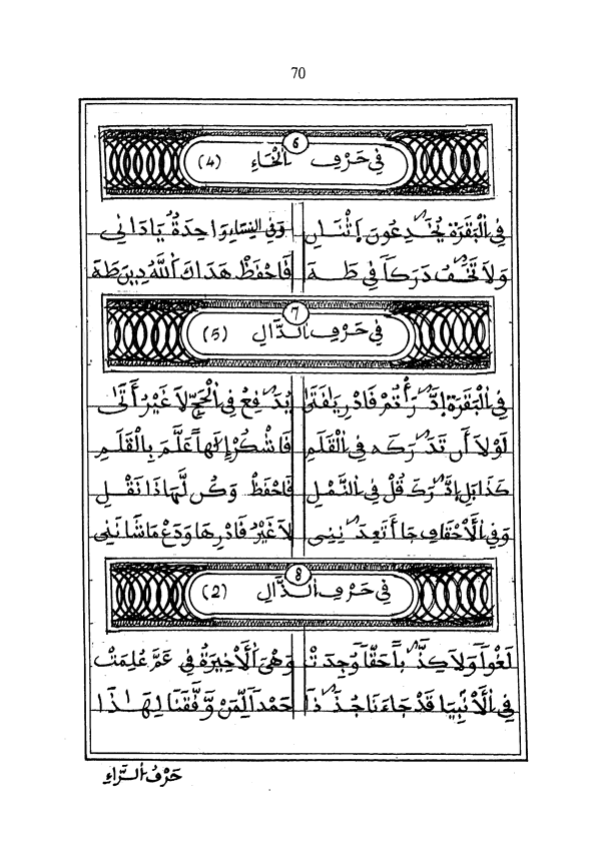 70
6
فِي حَرْفِ الْخَاءِ (4)
فِي الْبَقَرَة يُخَـٰدِعُونَ إِثْنَـانِ وَفِي النِّسَاءِ وَاحِدَةُ يَادَانِي
وَلَا تَخَـٰفُ دَرَكًا فِي طَـهَ فَاحْفَظْ هَدَاكَ اللَّهُ دِينَ طَهَ
7
فِي حَرْفِ الدَّالِ (5)
فِي الْبَقَرَة إدَّ ٰرَأْتُمْ فَادْرِ يَافَتَى يُدَ ٰفِعُ فِي الْحَجِّ لَا غَيْرُ أَتَى
لَوْلَا أَن تَدَ ٰرَكَه فِي الْقَلَمِ فَاشْكُرْ إِلَهاً عَلَّمَ بِالْقَلَمِ
كَذَا بَلِ إدَّ ٰرَكَ قُلْ فِي النَّمْلِ فَاحْفَظْ وَكُن لِّهَاذَا نَقْلِ
وَفِي الْأَحْقَافِ جَا أَتَعِدَ ٰنِنِى لَا غَيْرُ فَادْرِهَا وَدَعْ مَا شَانَنِى
8
فِي حَرْفِ الذَّالِ (2)
لَغْواً وَلَا كِذَّ ٰباً حَقّاً وُجِدَتْ وَهْىَ الْأَخِيرَةُ فِي عَمَّ عُلِمَتْ
فِي الْأَنْبِيَا قَدْ جَاءَنَا جُذَ ٰذًا حَمْداً لِّمَنْ وَفَّقَنَا لِهَـٰذَا
حَرْفُ الرَّاءِ